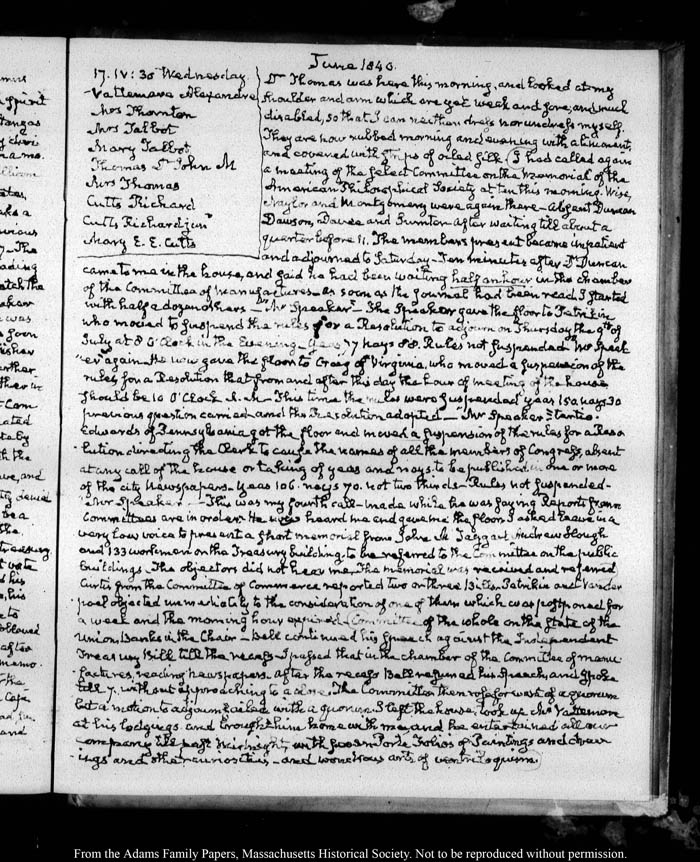 June 1840.
17. IV: 30 Wednesday
Vattemare Alexandre
Mrs Thornton
Mrs Talbot
Mary Talbot
Thomas Dr John M
Mrs Thomas
Cutts Richard
Cutts Richard junr
Mary E. E. Cutts
Dr Thomas was here this morning, and looked at my
shoulder and arm which are yet weak and sore, and much
disabled, so that I can neither dress nor undress myself.
They are now rubbed morning and evening with a liniment,
and covered with strips of oiled silk. I had called again
a meeting of the Select Committee on the memorial of the
American Philosophical Society at ten this morning. Wise,
Naylor and Montgomery were again there – Absent Duncan
Dawson, Davee and Sumter. After waiting till about a
quarter before 11. The members present became impatient
and adjourned to Saturday – Ten minutes after Dr Duncan
came to me in the house, and said he had been waiting half an hour in the chamber
of the Committee of Manufactures – As soon as the Journal had been read I started
with half a dozen others – "Mr Speaker" – The Speaker gave the floor to Petrikin
who moved to suspend the rules for a Resolution to adjourn on Thursday the 9th of
July at 8 O'Clock in the Evening – Yeas 77 nays 88. Rules not suspended – "Mr Speak
"er" again – He now gave the floor to Craig of Virginia, who moved a suspension of the
rules for a Resolution that from and after this day the hour of meeting of the house
should be 10 O'Clock A.M – This time the rules were suspended yeas 150 nays 30
previous question carried and the Resolution adopted – "Mr Speaker"
Edwards of Pennsylvania got the floor and moved a suspension of the rules for a Reso
lution directing the Clerk to cause the names of all the members of Congress, absent
at any call of the house or taking of yeas and nays, to be published in one or more
of the city Newspapers – Yeas 106. nays 70. not two thirds – Rules not suspended –
"Mr Speaker" – This was my fourth call – made while he was saying Reports from
Committees are in order. He now heard me and gave me the floor. I asked leave in a
very low voice to present a short memorial from John M Taggart Andrew Hough
and 133 workmen on the Treasury building, to be referred to the Committee on the public
buildings. The objectors did not hear me. The memorial was received and referred
Curtis from the Committee of Commerce reported two or three Bills. Petrikin and Vander
poel objected immediately to the consideration of one of them which was postponed for
a week and the morning hour expired. Committee of the whole on the state of the
Union, Banks in the Chair – Bell continued his Speech against the Independent
Treasury Bill till the recess – I passed that in the chamber of the Committee of manu
factures, reading newspapers. After the recess Bell resumed his Speech, and spoke
till 7. without approaching to a close. The Committee then rose for want of a quorum
but a motion to adjourn failed with a quorum. I left the house, took up Mr Vattemare
at his lodgings and brought him home with me, and he entertained all our
company till past Midnight, with two Porte Folios of Paintings and draw
ings and other curiosities, – and wondrous arts of ventriloquism.
From the Adams Family Papers, Massachusetts Historical Society. Not to be reproduced without permission.